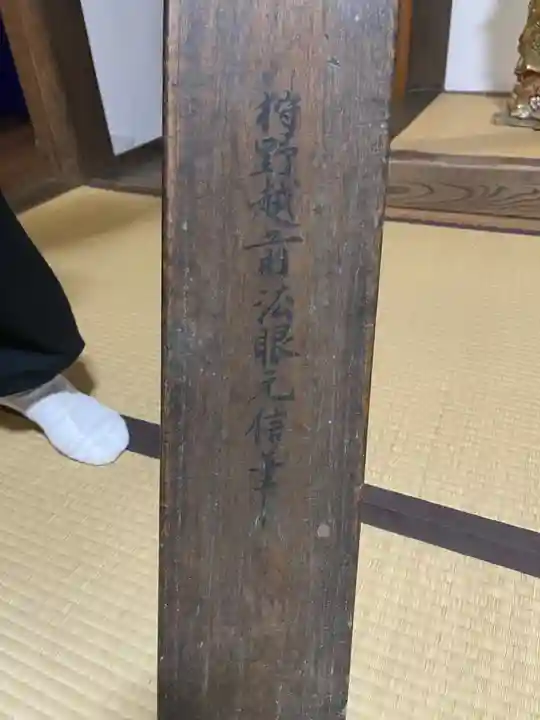 狩野越前法眼元信筆